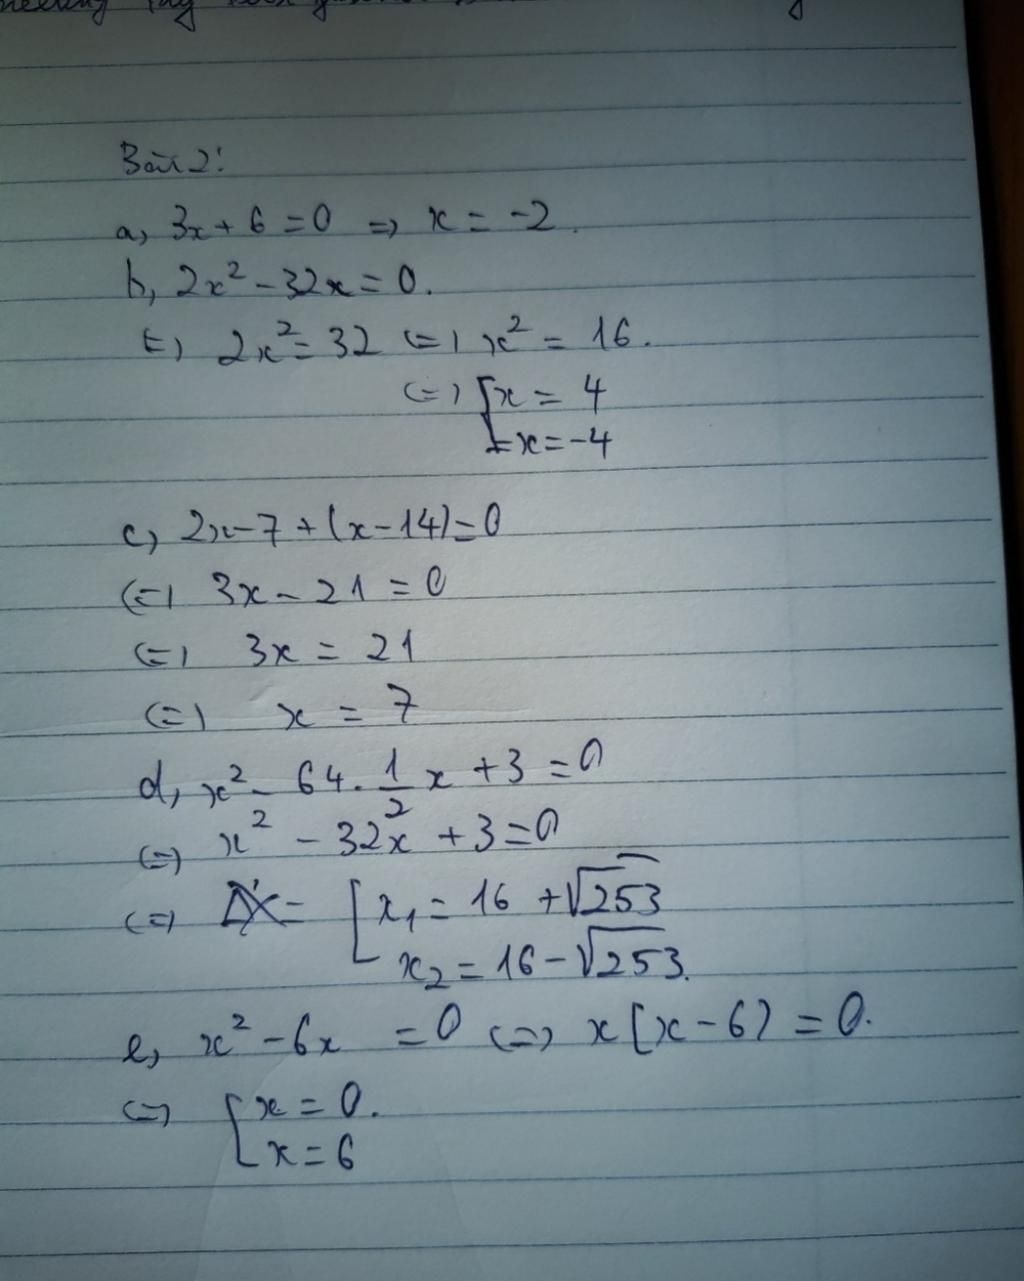 Bài 2:
a, 3x + 6 = 0 => x = -2.
b, 2x² - 32x = 0.
<=> 2x² = 32 <=> x² = 16.
<=> [ x = 4
x = -4
c, 2x - 7 + (x - 14) = 0
<=> 3x - 21 = 0
<=> 3x = 21
<=> x = 7
d, x² - 64 . 1/2 x + 3 = 0
<=> x² - 32x + 3 = 0
<=> [ x₁ = 16 + √253
x₂ = 16 - √253.
e, x² - 6x = 0 <=> x(x - 6) = 0.
<=> [ x = 0.
x = 6